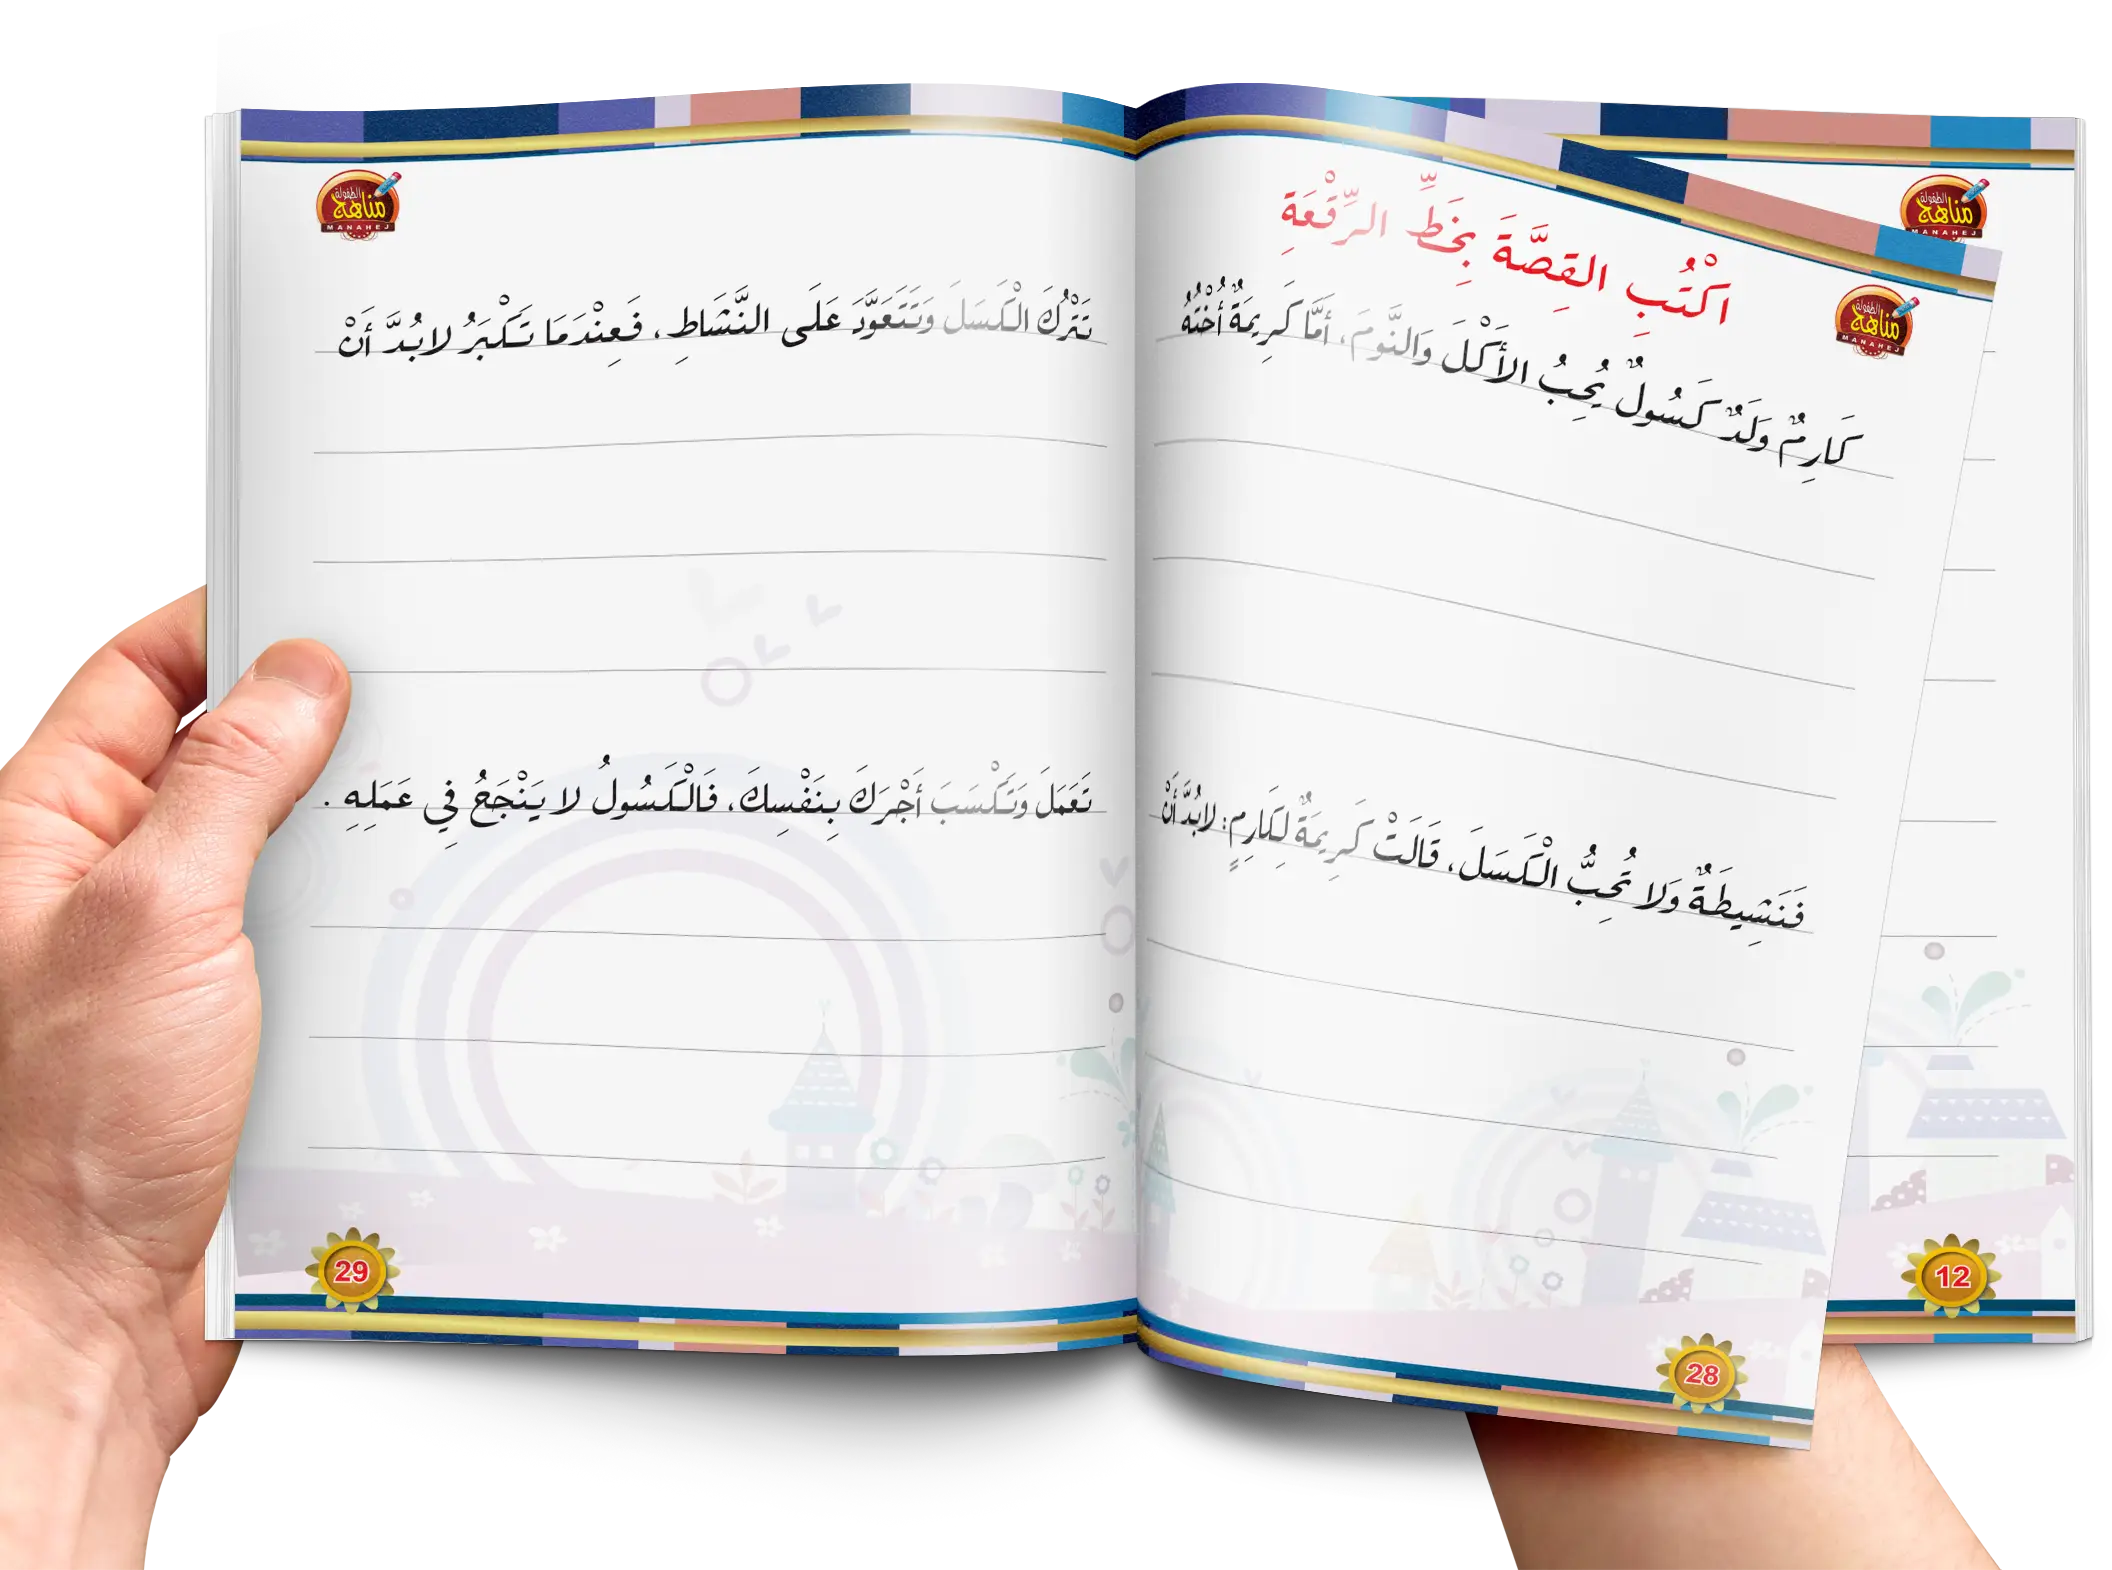 اكْتُبِ القِصَّةَ بِخَطِّ الرِّقْعَةِ
كَارِمٌ وَلَدٌ كَسُولٌ يُحِبُّ الأَكْلَ وَالنَّوْمَ، أَمَّا كَرِيمَةٌ أُخْتُهُ
فَنَشِيطَةٌ وَلا تُحِبُّ الْكَسَلَ، قَالَتْ كَرِيمَةٌ لِكَارِمٍ: لابُدَّ أَنْ
28
تَتْرُكَ الْكَسَلَ وَتَتَعَوَّدَ عَلَى النَّشَاطِ، فَعِنْدَمَا تَكْبَرُ لابُدَّ أَنْ
تَعْمَلَ وَتَكْسَبَ أَجْرَكَ بِنَفْسِكَ، فَالْكَسُولُ لا يَنْجَحُ فِي عَمَلِهِ .
29
12
مناهج الطفولة
MANAHEJ
مناهج الطفولة
MANAHEJ
مناهج الطفولة
MANAHEJ